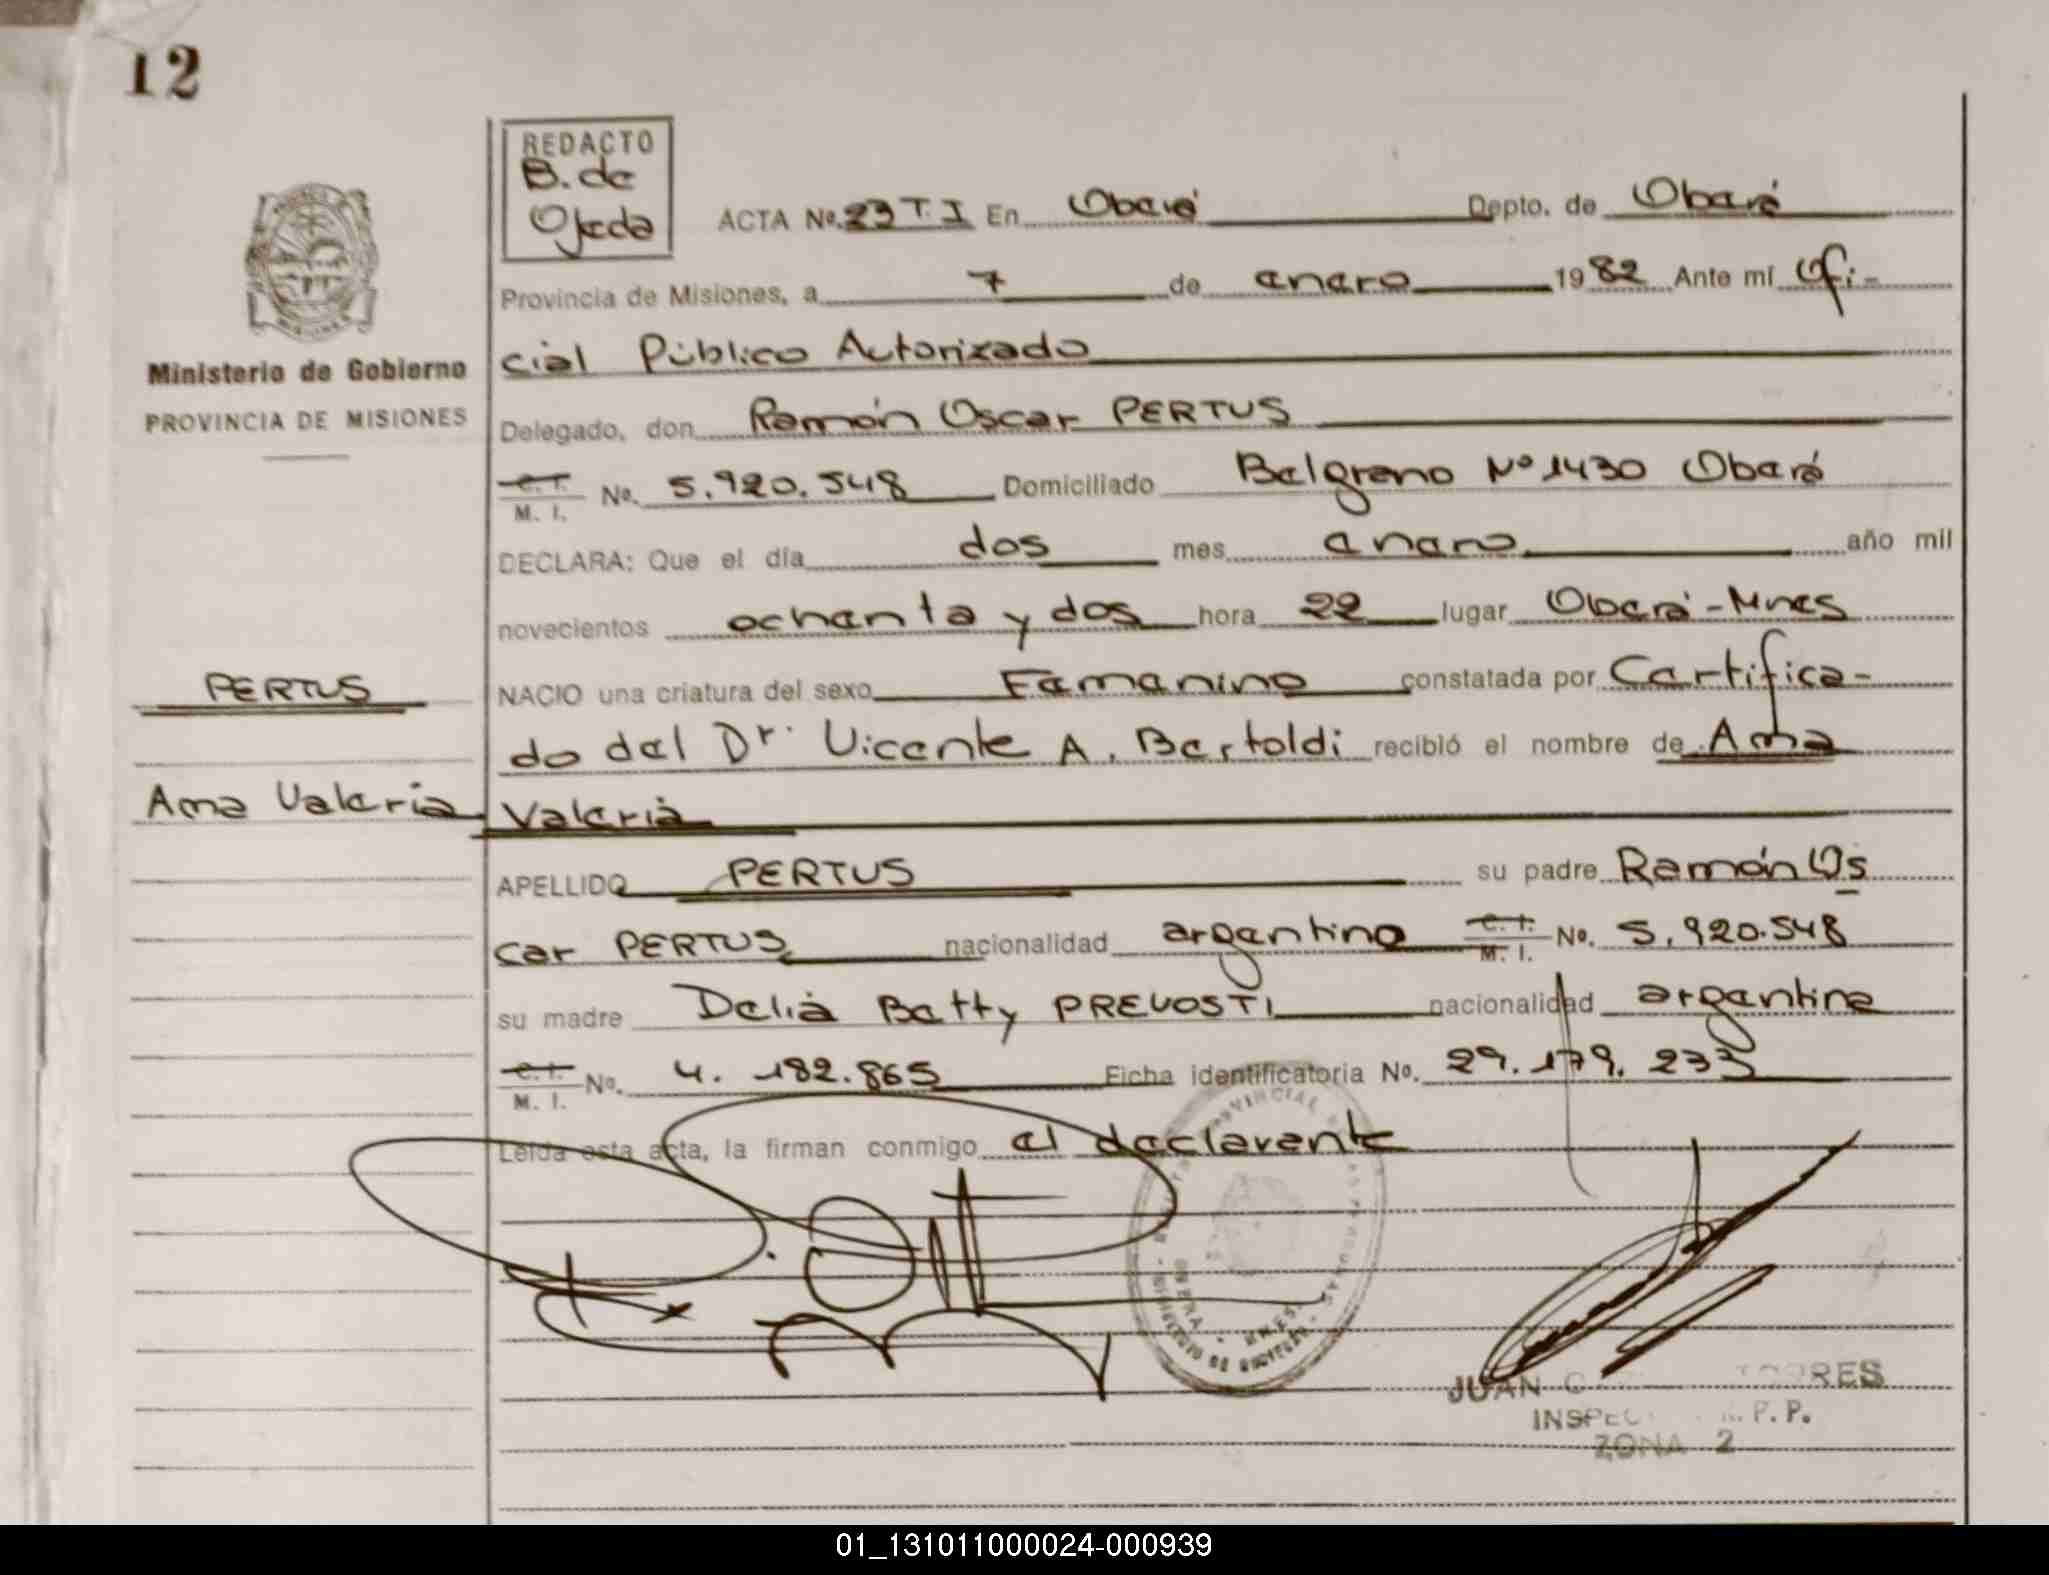 12
REDACTO
B. de
Ojeda
ACTA No. 23 T. I En Oberá Depto. de Oberá
Provincia de Misiones, a 7 de enero 1982 Ante mí Ofi-
cial Público Autorizado
Ministerio de Gobierno
PROVINCIA DE MISIONES
Delegado, don Ramón Oscar PERTUS
C. I.
M. I. No. 5.920.548 Domiciliado Belgrano Nº 1430 Oberá
DECLARA: Que el día dos mes enero año mil
novecientos ochenta y dos hora 22 lugar Oberá-Mnes
PERTUS
NACIO una criatura del sexo Femenino constatada por Certifica-
do del Dr. Vicente A. Bertoldi recibió el nombre de Ana
Ana Valeria
Valeria
APELLIDO PERTUS su padre Ramón Os
car PERTUS nacionalidad argentino C. I.
M. I. No. 5.920.548
su madre Delia Betty PREVOSTI nacionalidad argentina
C. I.
M. I. No. 4.182.865 Ficha identificatoria No. 29.179.233
Leída esta acta, la firman conmigo el declarante
JUAN
ZONA 2
01_131011000024-000939